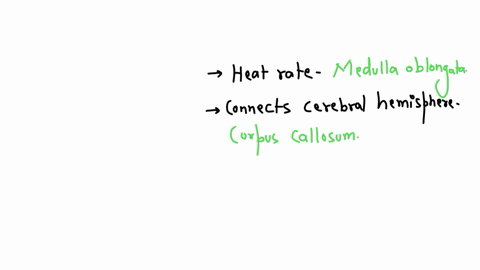 → Heat rate - Medulla oblongata.
→ Connects cerebral hemisphere.
Corpus callosum.